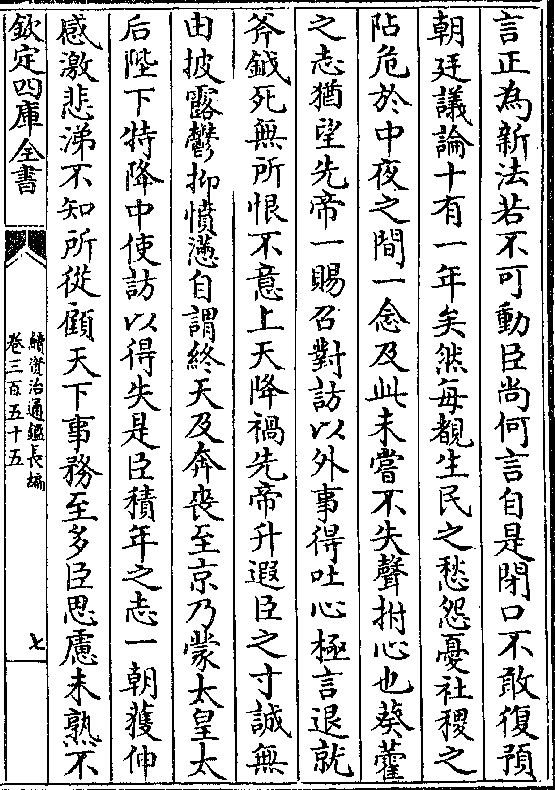 言正為新法若不可動臣尚何言自是閉口不敢復預
朝廷議論十有一年矣然每覩生民之愁怨憂社稷之
阽危於中夜之間一念及此未嘗不失聲拊心也葵藿
之志猶望先帝一賜召對訪以外事得吐心極言退就
斧鉞死無所恨不意上天降禍先帝升遐臣之寸誠無
由披露鬱抑憤懣自謂終天及奔喪至京乃蒙太皇太
后陛下特降中使訪以得失是臣積年之志一朝獲伸
感激悲涕不知所從顧天下事務至多臣思慮未熟不
欽定四庫全書
續資治通鑑長編
卷三百五十五
七